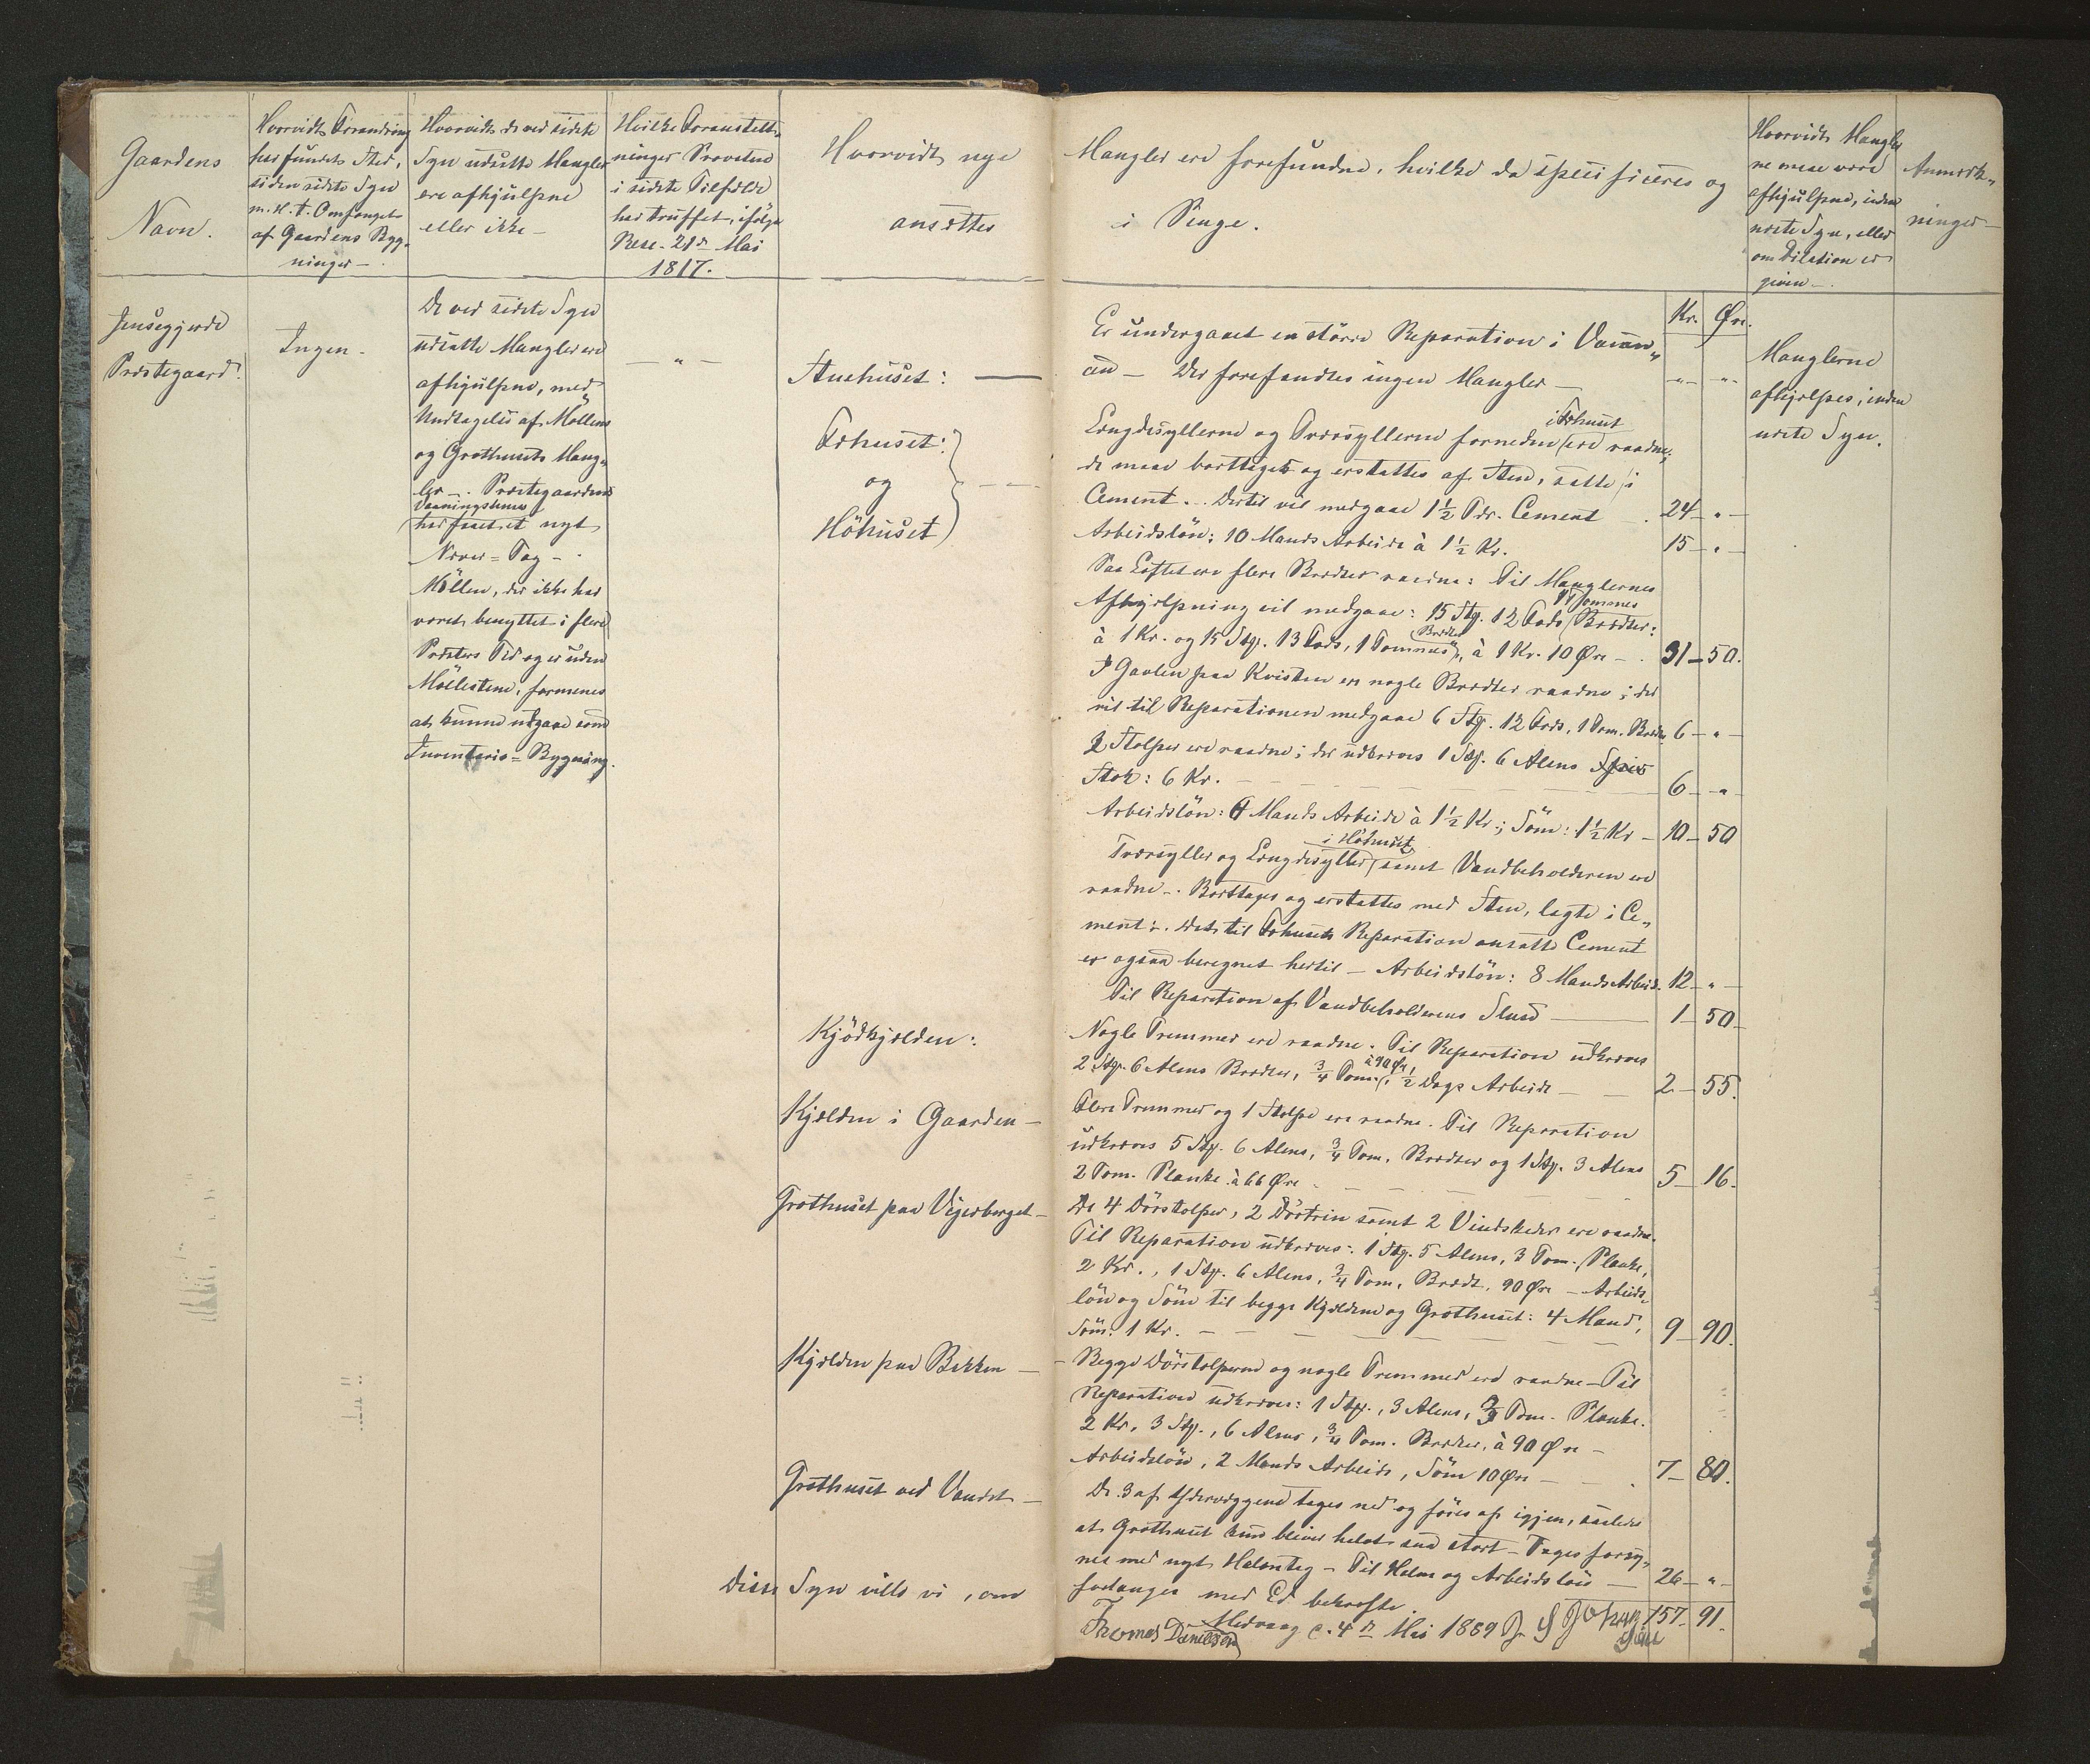 Gaardens
Navn.
Hvorvidt Forandring
har fundet Sted,
siden sidste Syn
m. H. t. Omfanget
af Gaardens Byg-
ninger -
Hvorvidt de ved sidste
Syn udsatte Mangler
ere afhjulpne
eller ikke -
Hvilke Foranstalt-
ninger Provsten
i sidste Tilfælde
har truffet, ifølge
Resc. 21de Mai
1817.
Hvorvidt nye
ansættes
Mangler ere forefundne, hvilke da specificeres og
i Penge.
Hvorvidt Mangler
ne maae være
afhjulpne, inden
næste Syn, eller
om Dilation er
given -
Anmærk-
ninger -
Jensegjerde
Præstegaard.
Ingen -
De ved sidste Syn
udsatte Mangler ere
afhjulpne, med
Undtagelse af Møllens
og Grothusets Mang-
ler -. Præstegaardens
Vaaningshuus
har faaet et nyt
Næver=Tag -.
Møllen, der ikke har
været benyttet i flere
Præsters Tid og er uden
Møllestene, formenes
at kunne udgaae som
Inventarie=Bygning.
— " —
Stuehuset: —
Föhuset:
og
Höhuset
Kr. Øre.
Er undergaaet en större Reparation i Vacan-
cen — Der forefandtes ingen Mangler —
-"- -"-
Længdesyllerne og Tværsyllerne forneden i Föhuset ere raadne;
de maae borttages og erstattes af Sten, satte i
Cement. - Dertil vil medgaae 1½ Tdr. Cement . 24 - " -
Arbeidslön: 10 Mands Arbeide à 1½ Kr. 15 - " -
Paa Loftet ere flere Brædder raadne: Til Manglernes
Afhjælpning vil medgaae: 15 Stg. 12 Fods 1 Tommes Brædder:
à 1 Kr. og 15 Stg. 13 Fods, 1 Tommes Brædder, à 1 Kr. 10 Øre - . 31 - 50.
I Gavlen paa Kvisten ere nogle Brædder raadne; der
vil til Reparationen medgaae 6 Stg. 12 Fods, 1 Tom. Brædder 6 - " -
2 Stolper ere raadne; der udkræves 1 Stg. 6 Alens
Stok: 6 Kr. - 6 - " -
Arbeidslön: 6 Mands Arbeide à 1½ Kr.; Söm: 1½ Kr - 10 - 50
Tværsyller og Længdesyller i Höhuset samt Vandbeholderen ere
raadne -. Borttages og erstattes med Sten, lagte i Ce-
ment -. Det til Föhusets Reparation ansatte Cement
er ogsaa beregnet hertil — Arbeidslön: 8 Mands Arbeid. 12 - " -
Til Reparation af Vandbeholderens Sluse — 1 - 50 -
Kjödkjælden:
Nogle Tremmer ere raadne. Til Reparation udkræves
2 Stg. 6 Alens Brædder, ¾ Tom. à 90 Ør, ½ Dags Arbeide — 2 - 55.
Kjælden i Gaarden —
Flere Tremmer og 1 Stolpe ere raadne. Til Reparation
udkræves 5 Stg. 6 Alens, ¾ Tom. Brædder og 1 Stg. 3 Alens
2 Tom. Planke à 66 Øre - 5 - 16.
Grothuset paa Vegerberget —
De 4 Dörstolper, 2 Dörtrin samt 2 Vindskeder ere raadne.
Til Reparation udkræves: 1 Stg. 5 Alens, 3 Tom. Planke,
2 Kr., 1 Stg. 6 Alens, ¾ Tom. Brædt. 90 Øre - Arbeids-
lön og Söm til begge Kjældere og Grothuset: 4 Mand,
Söm: 1 Kr. - 9 - 90.
Kjælden paa Bakken —
Begge Dörstolperne og nogle Tremmer ere raadne - Til
Reparation udkræves: 1 Stg., 3 Alens, 3 Tom. Planke.
2 Kr, 3 Stg., 6 Alens, ¾ Tom. Brædder, à 90 Øre -
Arbeidslön, 2 Mands Arbeide, Söm 10 Øre - 7 - 80.
Grothuset ved Vandet —
De 3 af Ydervæggene tages ned og föres op igjen, saaledes
at Grothuset kun bliver halvt saa stort - Taget forsy-
nes med nyt Halmtag - Til Halm og Arbeidslön — 26 - " -
157 - 91.
Manglerne
afhjælpes, inden
næste Syn.
Dette Syn ville vi, om
forlanges med Ed bekræfte.
4de Mai 1889
Thomas Danielsen